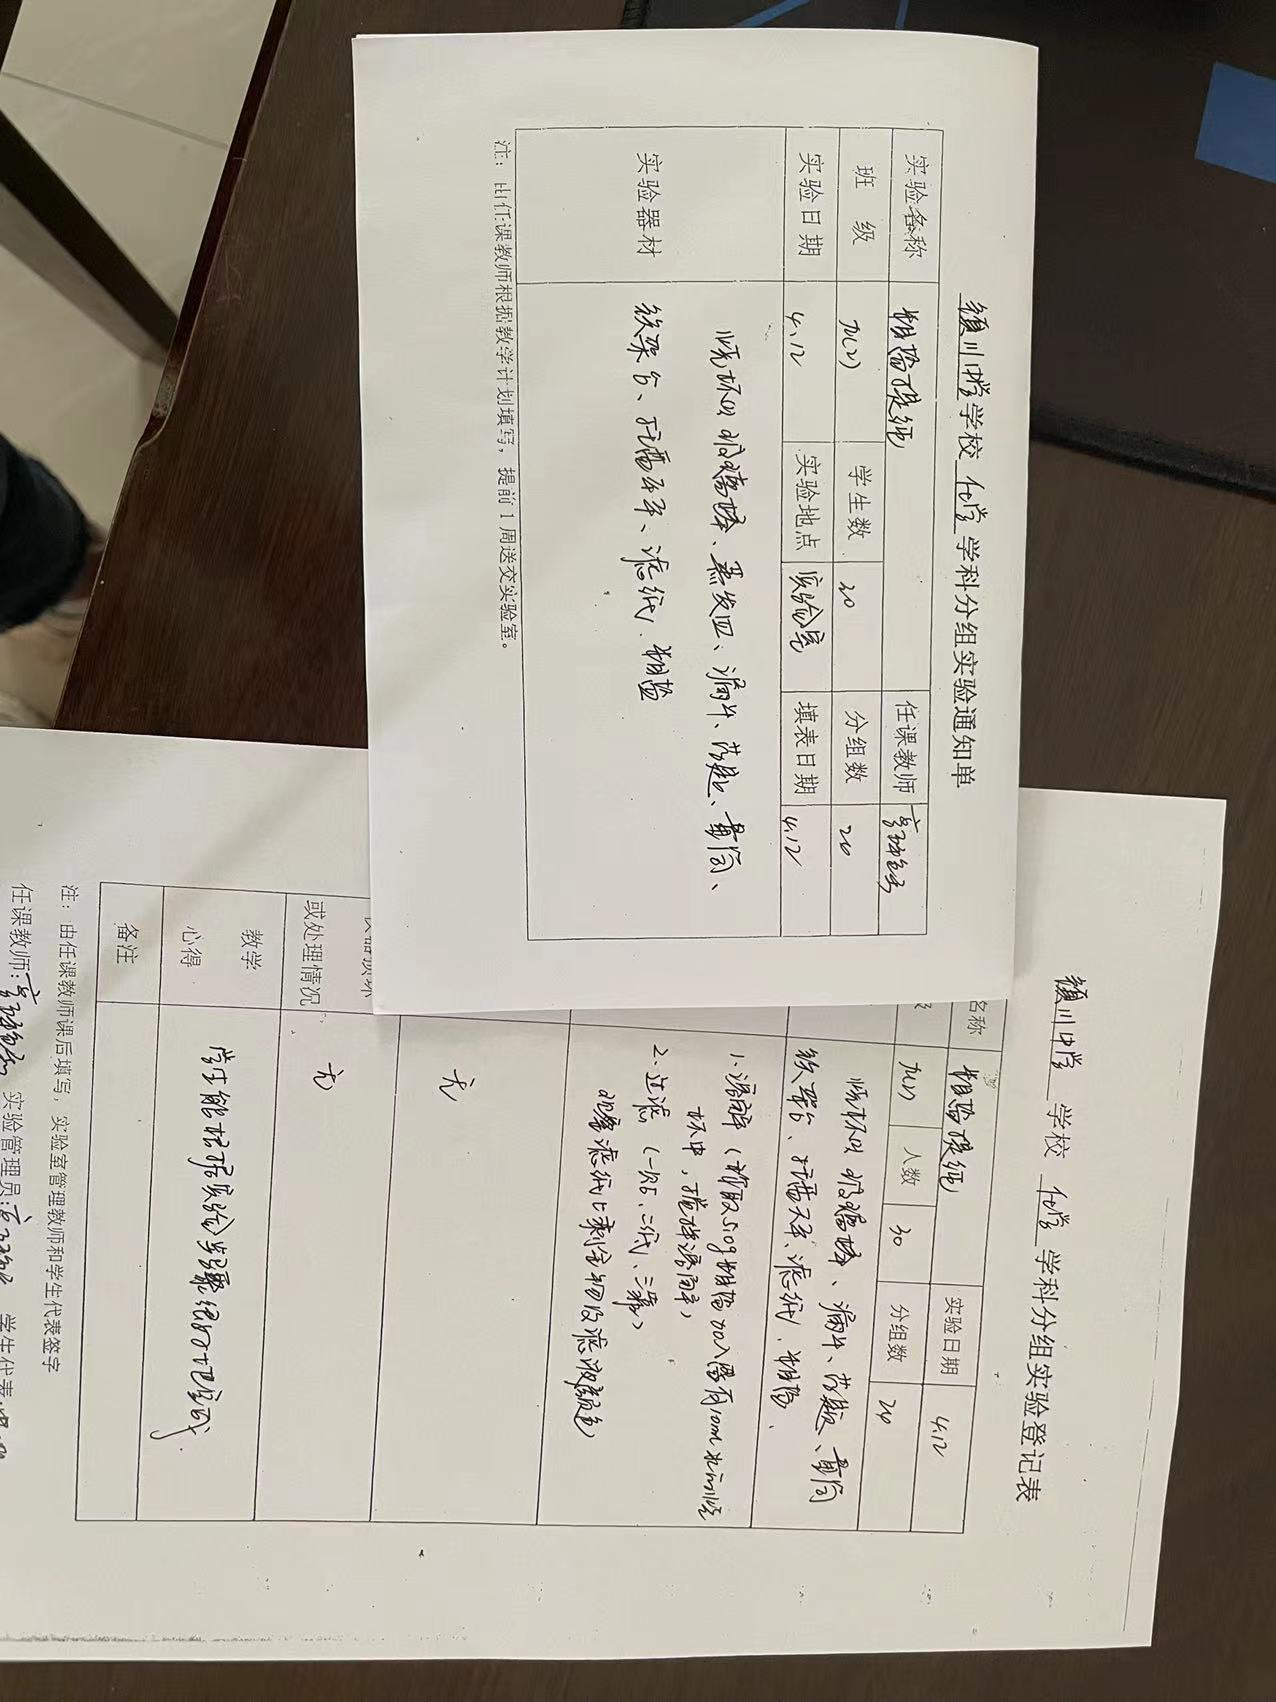 颍川中学学校 化学 学科分组实验通知单
实验名称 粗盐提纯 任课教师
班 级 九(2) 学生数 30 分组数 20
实验日期 4.12 实验地点 实验室 填表日期 4.12
实验器材
烧杯 玻璃棒、蒸发皿、漏斗、药匙、量筒、
铁架台、托盘天平、滤纸、粗盐
注：由任课教师根据教学计划填写，提前1周送交实验室。
颍川中学 学校 化学 学科分组实验登记表
名称 粗盐提纯 实验日期 4.12
人数 30 分组数
烧杯 玻璃棒、漏斗、药匙、量筒
铁架台、托盘天平、滤纸、粗盐.
1.溶解(称取5.0g粗盐加入盛有10ml水的烧
杯中，搅拌溶解)
2.过滤(一贴、二低、三靠)
观察滤纸上剩余物及滤液颜色
无
或处理情况 无
教学
心得
学生能根据实验步骤很好地完成.
备注
注：由任课教师课后填写，实验室管理教师和学生代表签字
任课教师: 实验管理员: 学生代表